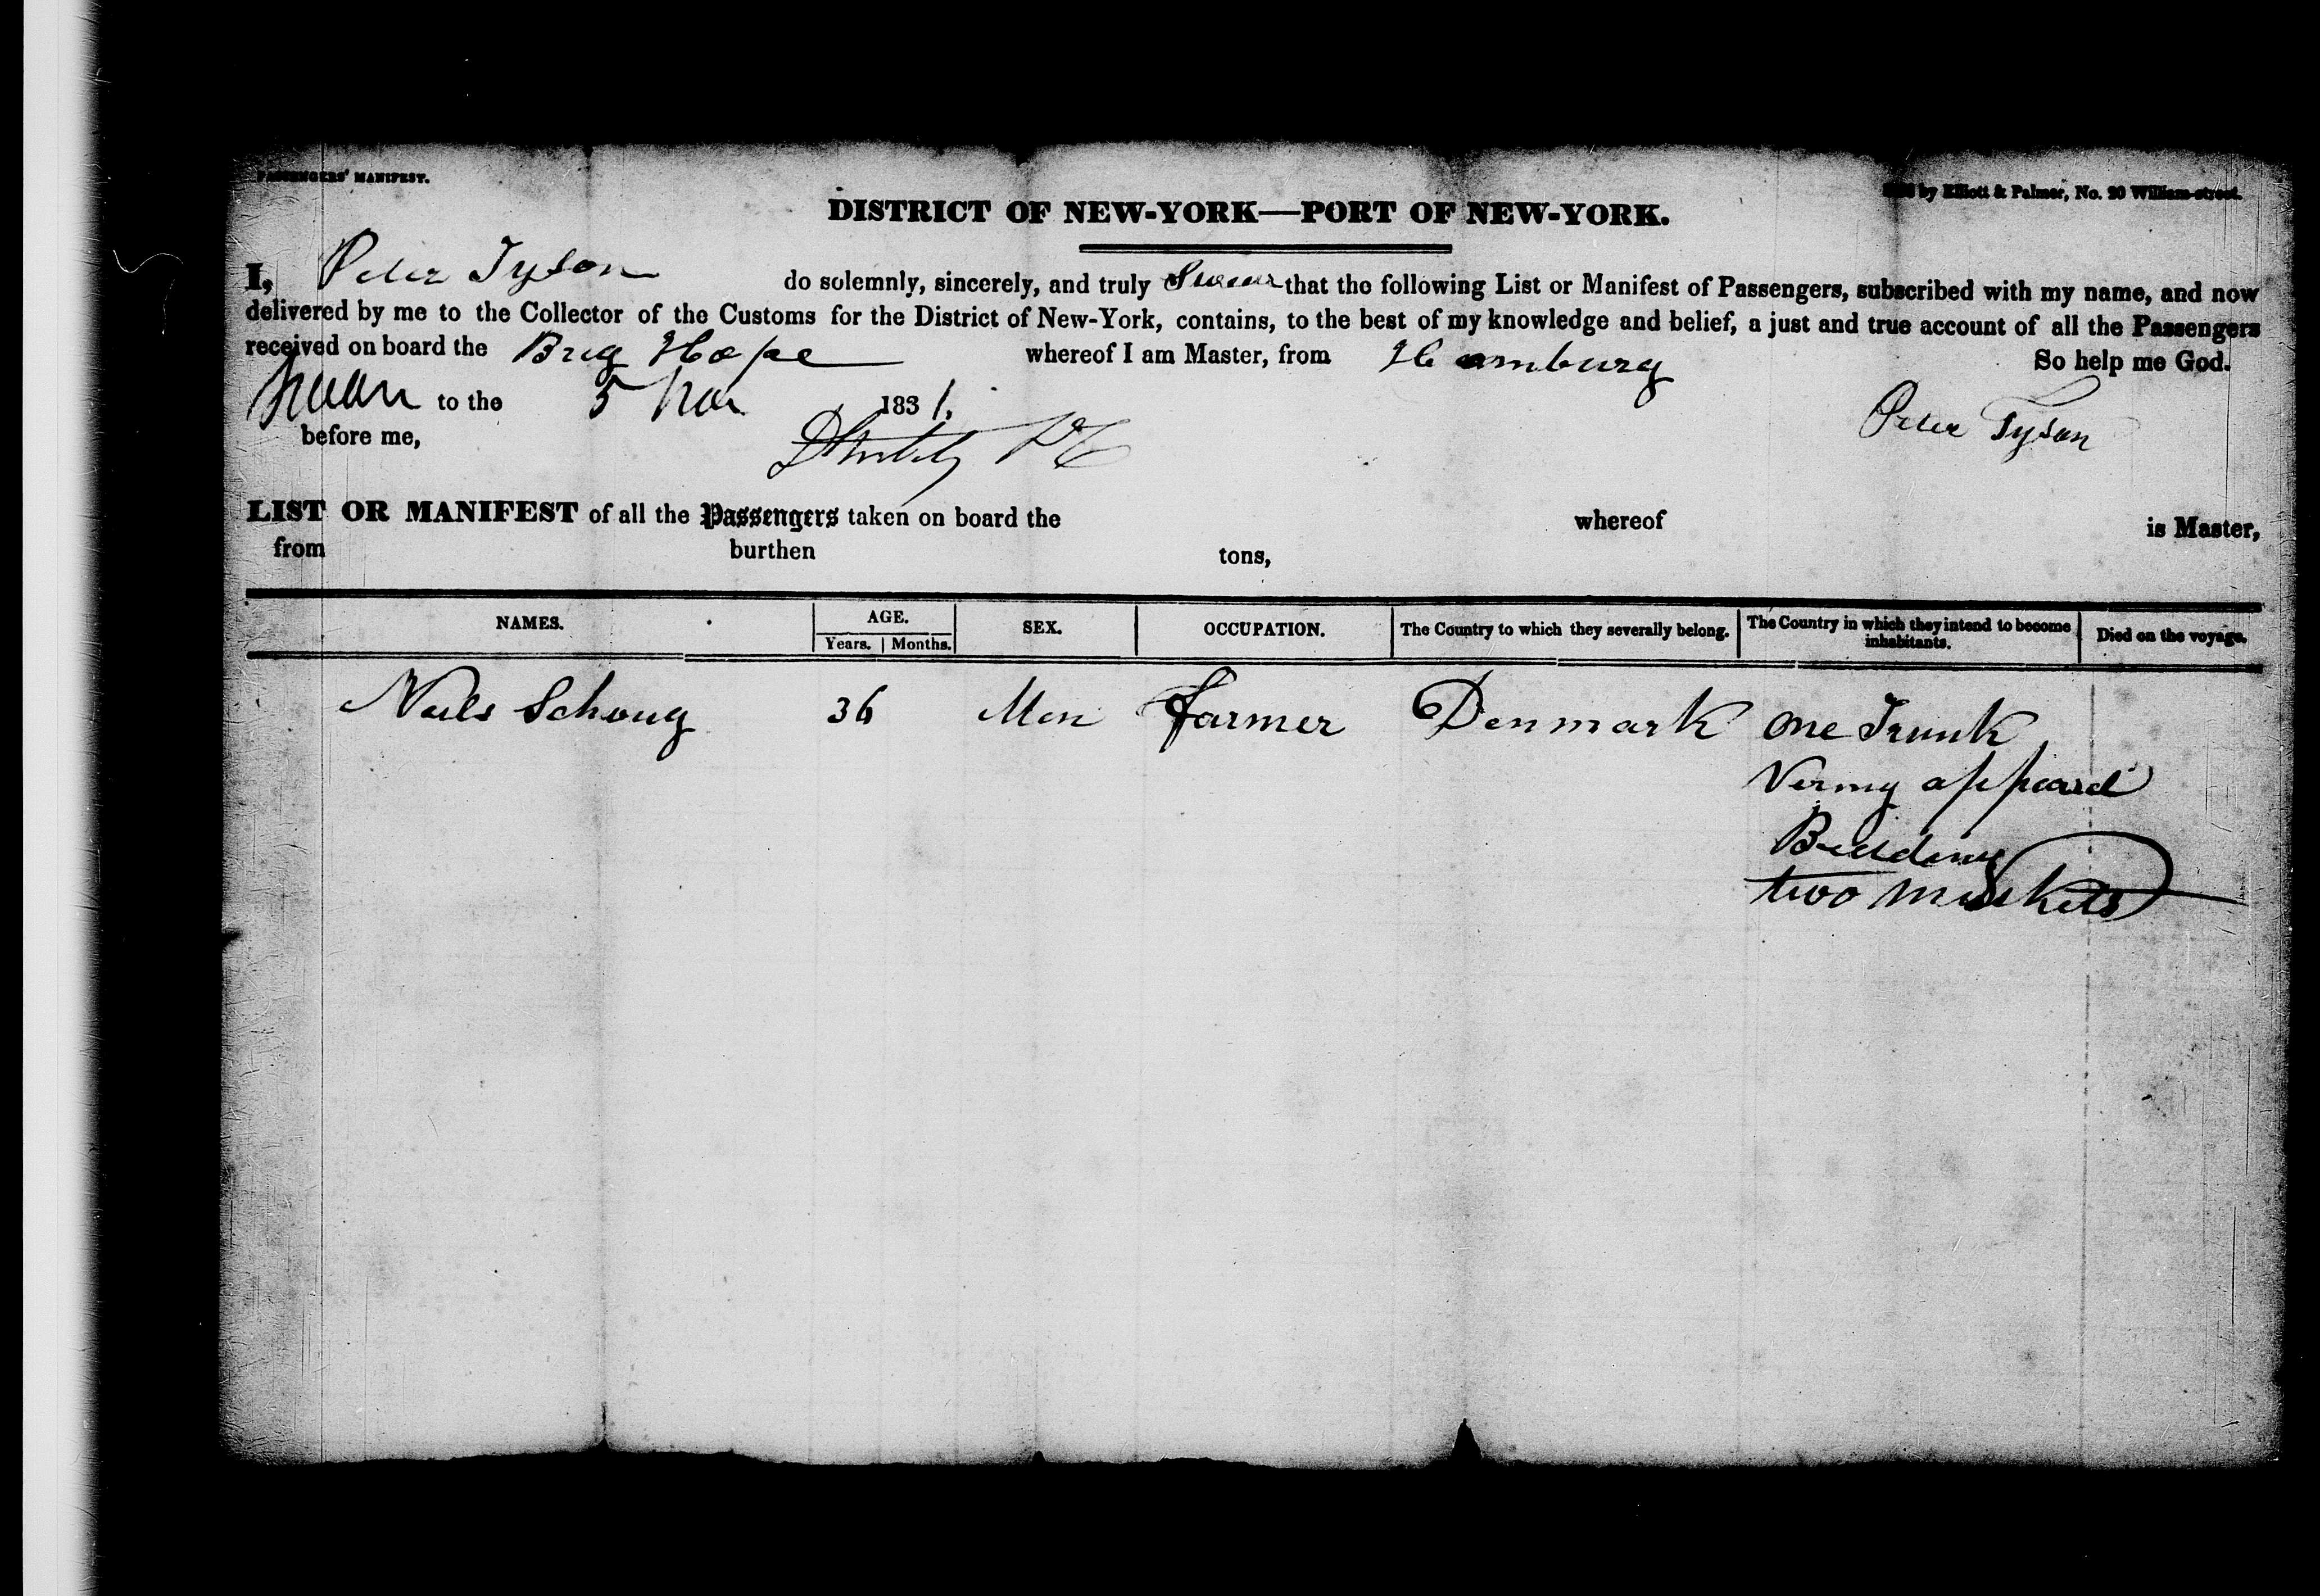 PASSENGERS' MANIFEST.
by Elliott & Palmer, No. 20 William-street.
DISTRICT OF NEW-YORK—PORT OF NEW-YORK.
I, Peter Tyson do solemnly, sincerely, and truly Swear that the following List or Manifest of Passengers, subscribed with my name, and now
delivered by me to the Collector of the Customs for the District of New-York, contains, to the best of my knowledge and belief, a just and true account of all the Passengers
received on board the Brig Hope whereof I am Master, from Hamburg So help me God.
Sworn to the 5 Nov 1831.
before me,
Peter Tyson
LIST OR MANIFEST of all the Passengers taken on board the whereof is Master,
from burthen tons,
NAMES. AGE. Years. Months. SEX. OCCUPATION. The Country to which they severally belong. The Country in which they intend to become inhabitants. Died on the voyage.
Niels Schoug 36 Men farmer Denmark one Trunk
appeard
Bedding
two muskets